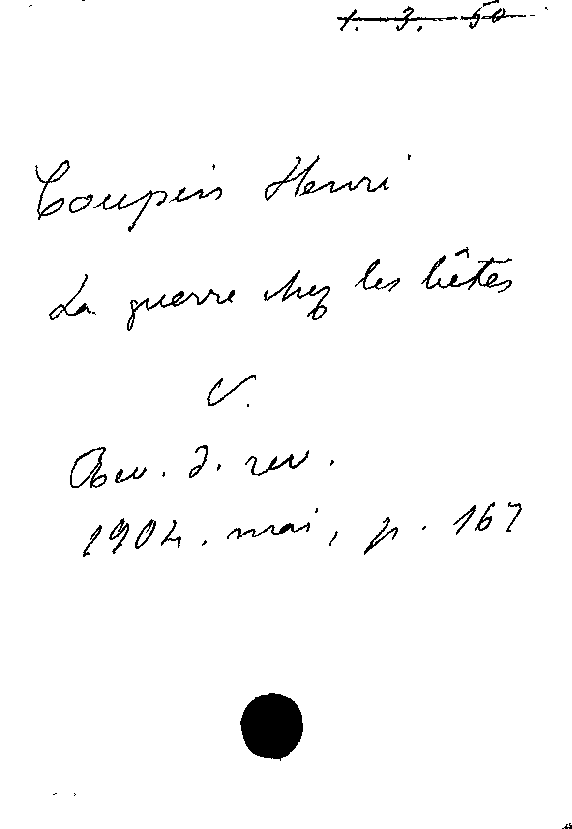 1. 3. 50
Coupin Henri
La guerre chez les bêtes
V.
Rev. d. rev.
1904. mai, p. 167